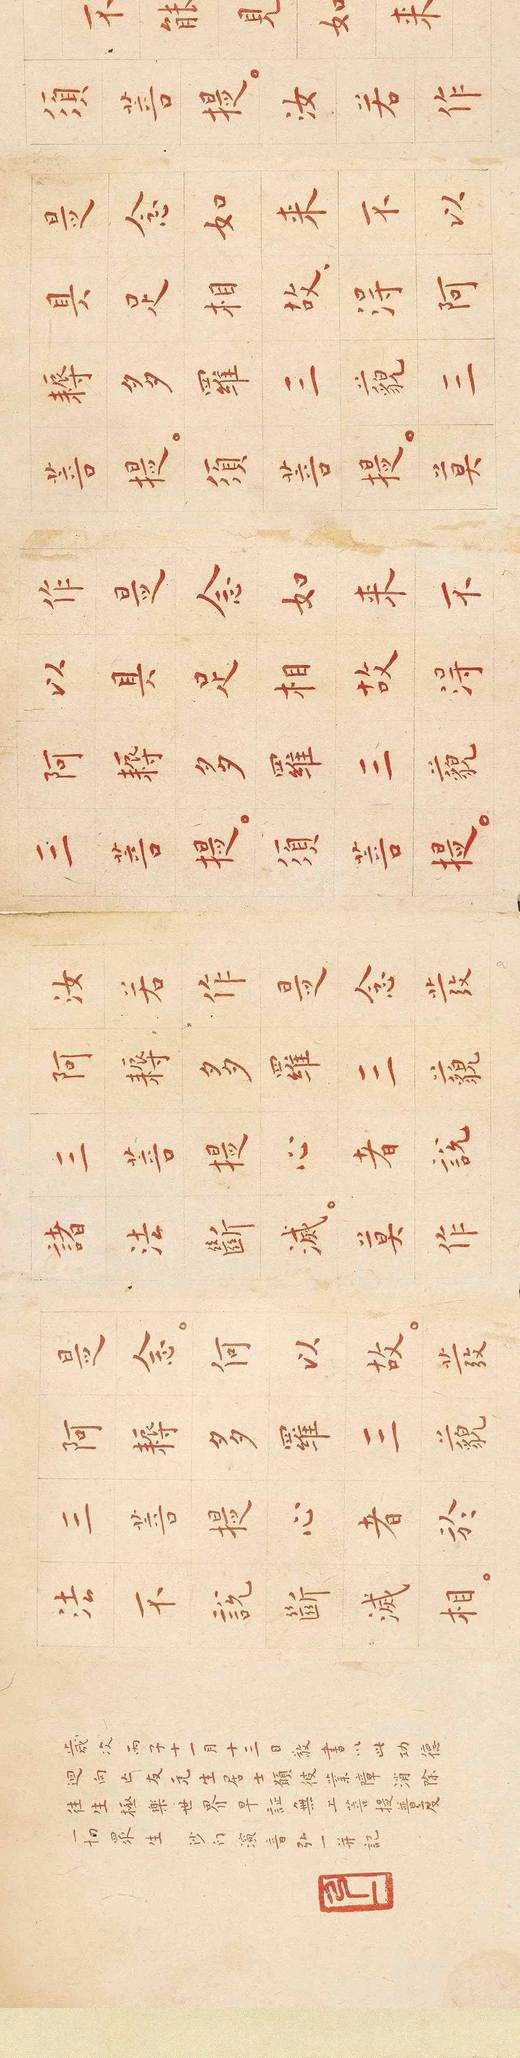 不能見如来
須菩提。汝若作
是念如来不以
具足相故、得阿
耨多羅三藐三
菩提。須菩提。莫
作是念如来不
以具足相故得
阿耨多羅三藐
三菩提。須菩提。
汝若作是念發
阿耨多羅三藐
三菩提心者說
諸法斷滅。莫作
是念。何以故。發
阿耨多羅三藐
三菩提心者於
法不說斷滅相。
歲次丙子十一月十三日敬書以此功德
迴向亡友元生居士願彼業障消除
往生極樂世界早証無上菩提普度
一切眾生 沙門演音弘一并記